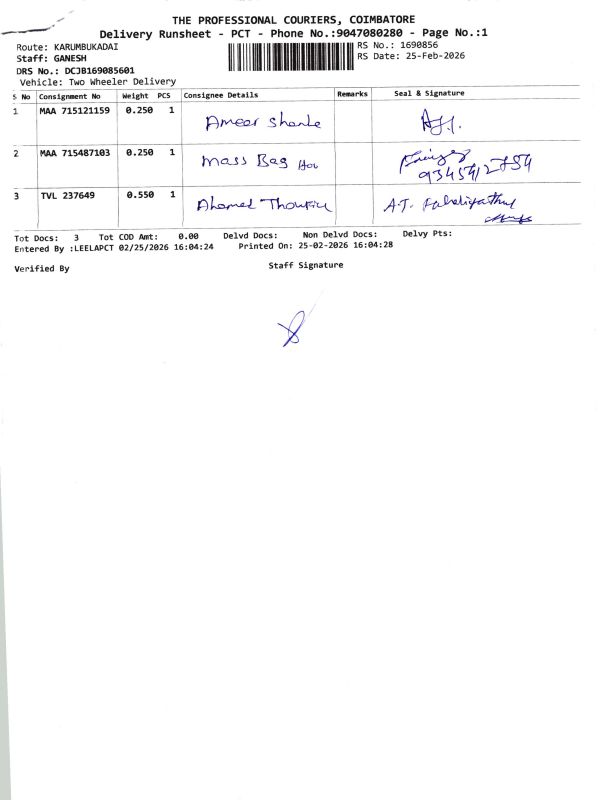 THE PROFESSIONAL COURIERS, COIMBATORE
Delivery Runsheet - PCT - Phone No.:9047080280 - Page No.:1
Route: KARUMBUKADAI RS No.: 1690856
Staff: GANESH RS Date: 25-Feb-2026
DRS No.: DCJB169085601
Vehicle: Two Wheeler Delivery
S No Consignment No Weight PCS Consignee Details Remarks Seal & Signature
1 MAA 715121159 0.250 1 Ameer
2 MAA 715487103 0.250 1 Mass Bag
3 TVL 237649 0.550 1 Ahamed A.T.
Tot Docs: 3 Tot COD Amt: 0.00 Delvd Docs: Non Delvd Docs: Delvy Pts:
Entered By :LEELAPCT 02/25/2026 16:04:24 Printed On: 25-02-2026 16:04:28
Verified By Staff Signature